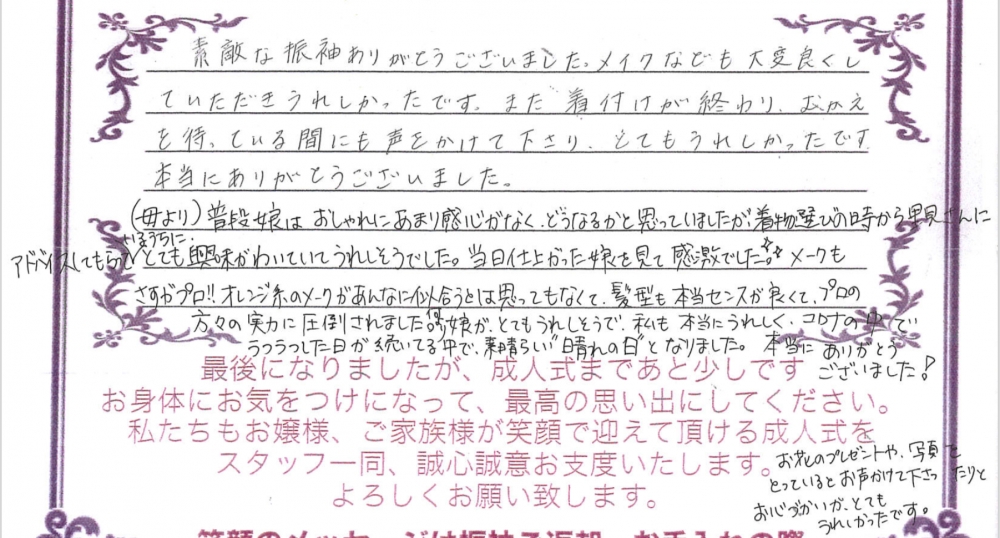 素敵な振袖ありがとうございました。メイクなども大変良くし
ていただきうれしかったです。また着付けが終わり、むかえ
を待っている間にも声をかけて下さり、とてもうれしかったです
本当にありがとうございました。
(母より)普段娘はおしゃれにあまり感心がなく、どうなるかと思っていましたが、着物選びの時から里見さんに
アドバイスしてもらうとても興味がわいていてうれしそうでした。当日仕上がった娘を見て感激でした。メークも
さすがプロ!!オレンジ系のメークがあんなに似合うとは思ってもなくて、髪型も本当センスが良くて、プロの
方々の実力に圧倒されました。娘が、とてもうれしそうで、私も本当にうれしく、コロナの中で
うつうつした日が続いてる中で、素晴らしい"晴れの日"となりました。本当に
ありがとう
ございました!
最後になりましたが、成人式まであと少しです
お身体にお気をつけになって、最高の思い出にしてください。
私たちもお嬢様、ご家族様が笑顔で迎えて頂ける成人式を
スタッフ一同、誠心誠意お支度いたします。
よろしくお願い致します。
お花のプレゼントや、写真を
とっているとお声かけて下さったりと
お心づかいが、とても
うれしかったです。